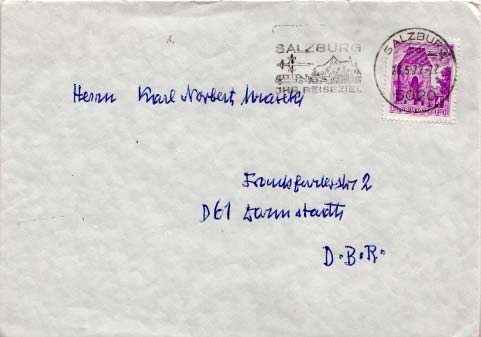 SALZBURG
IHR REISEZIEL
SALZBURG
5020
Herrn Karl Norbert Mrasek
Frankfurterstr 2
D61 Darmstadt
D.B.R.